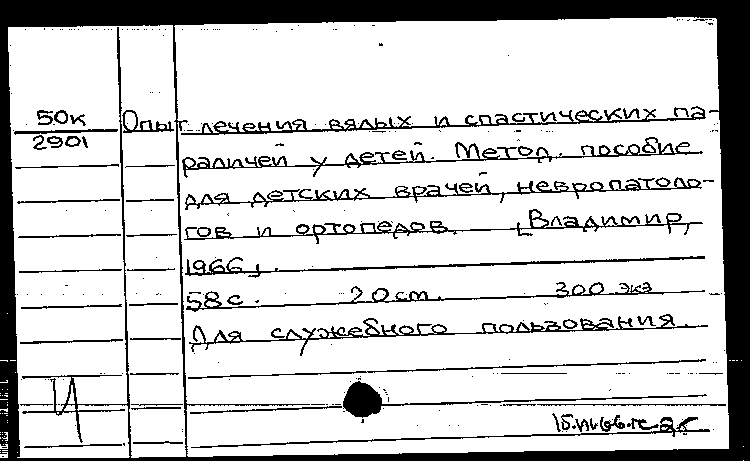 50к
2901
Опыт лечения вялых и спастических па-
раличей у детей. Метод. пособие
для детских врачей, невропатоло-
гов и ортопедов. [Владимир,
1966].
58 с. 20 см. 300 экз
Для служебного пользования.
И